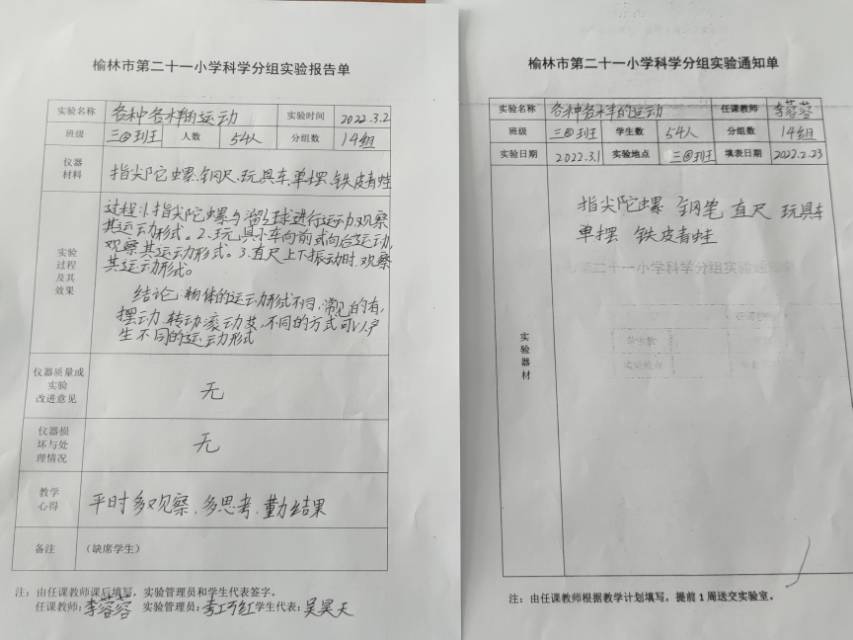 榆林市第二十一小学科学分组实验报告单
实验名称 各种各样的运动 实验时间 2022.3.2
班级 三④班 人数 54人 分组数 14组
仪器材料 指尖陀螺.钢尺.玩具车.单摆.铁皮青蛙
实验过程及其效果
过程:1.指尖陀螺与溜溜球进行运动.观察
其运动形式。2.玩具小车向前或向后运动,
观察其运动形式。3.直尺上下振动时,观察
其运动形式。
结论:物体的运动形式不同,常见的有,
摆动.转动.滚动等.不同的方式可以产
生不同的运动形式
仪器质量或实验改进意见 无
仪器损坏与处理情况 无
教学心得 平时多观察.多思考.重力结果
备注 (缺席学生)
注:由任课教师课后填写,实验管理员和学生代表签字。
任课教师:李蓉蓉 实验管理员: 学生代表:吴昊天
榆林市第二十一小学科学分组实验通知单
实验名称 各种各样的运动 任课教师 李蓉蓉
班级 三④班 学生数 54人 分组数 14组
实验日期 2022.3.1 实验地点 三④班 填表日期 2022.2.23
实验器材
指尖陀螺 钢笔 直尺 玩具车
单摆 铁皮青蛙
注:由任课教师根据教学计划填写,提前1周送交实验室。